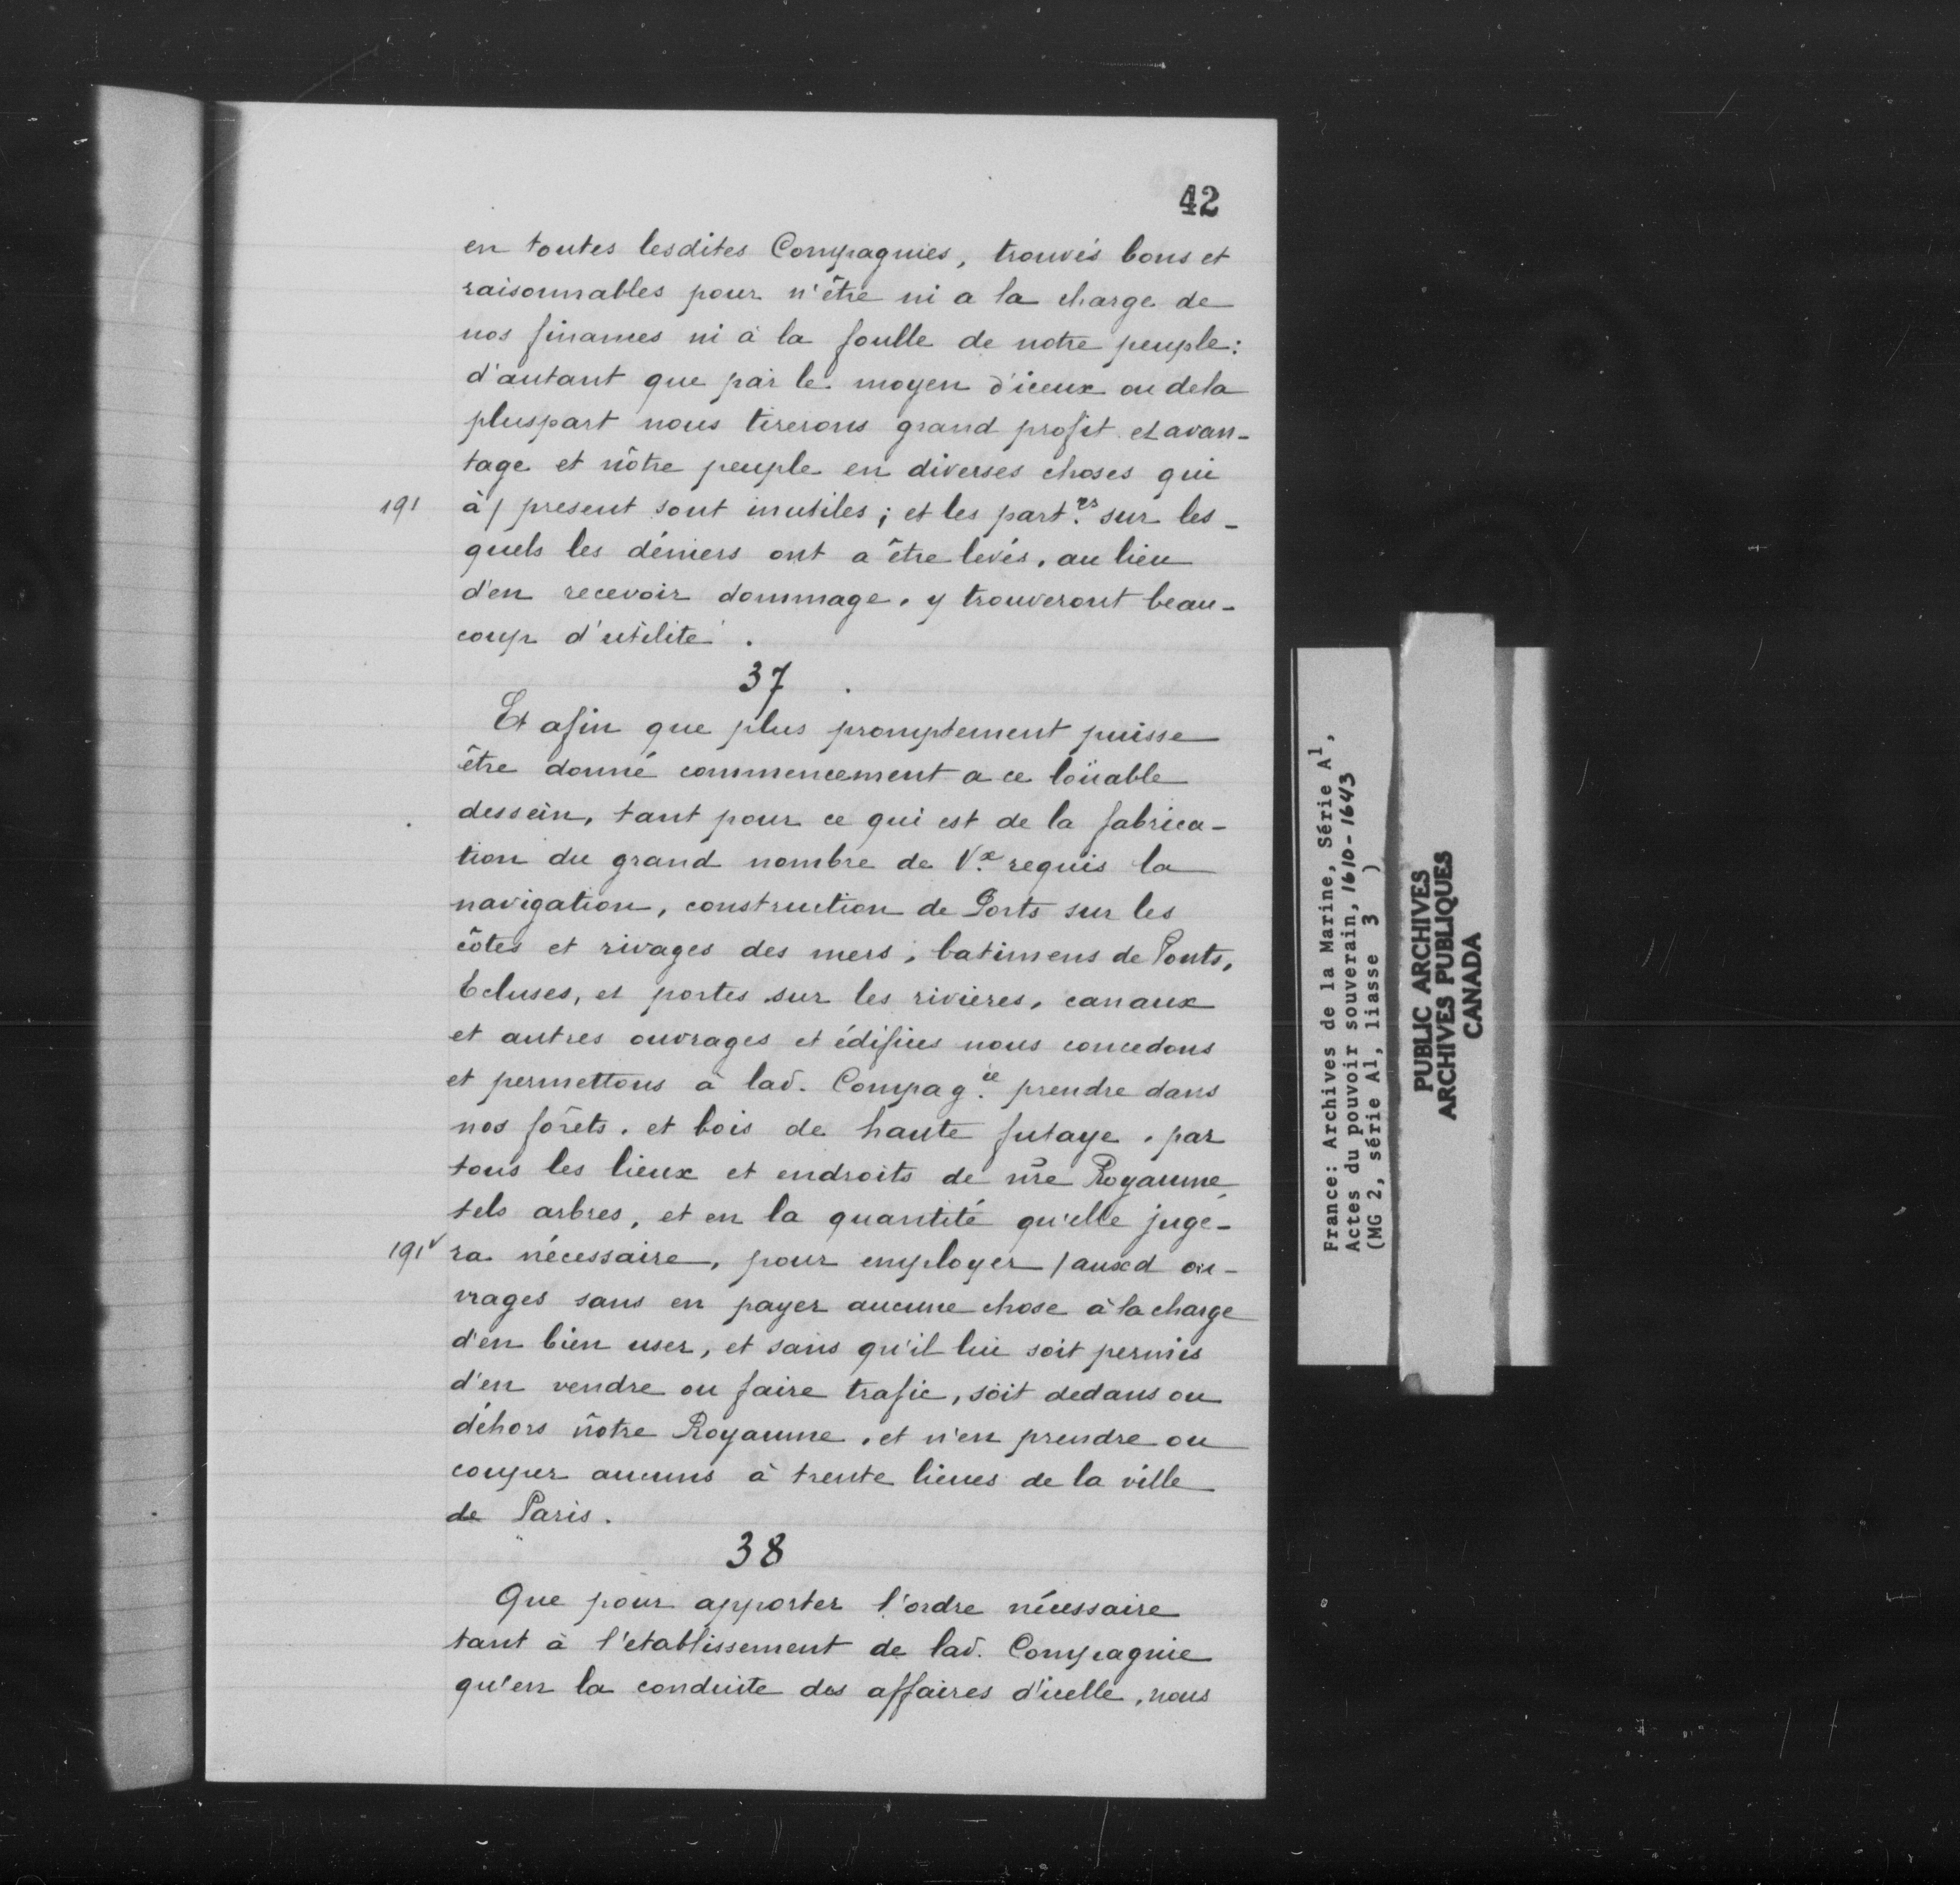 42
en toutes lesdites Compagnies, trouvés bons et
raisonnables pour n'être ni a la charge de
nos finances ni à la foulle de notre peuple:
d'autant que par le moyen d'iceux ou dela
pluspart nous tirerons grand profit et avan-
tage et nôtre peuple en diverses choses qui
191 à / present sont inutiles; et les part.rs sur les-
quels les déniers ont a être levés, au lieu
d'en recevoir dommage, y trouveront beau-
coup d'utilité.
37.
Et afin que plus promptement puisse
être donné commencement a ce loüable
dessein, tant pour ce qui est de la fabrica-
tion du grand nombre de V.x requis la
navigation, construction de Ports sur les
côtes et rivages des mers, batimens de Ponts,
Ecluses, et portes sur les rivieres, canaux
et autres ouvrages et édifices nous concedons
et permettons à lad. Compag.ie prendre dans
nos forêts, et bois de haute futaye, par
tous les lieux et endroits de nre Royaume,
tels arbres, et en la quantité qu'elle juge-
191v ra nécessaire, pour employer / auxd ou-
vrages sans en payer aucune chose à la charge
d'en bien user, et sans qu'il lui soit permis
d'en vendre ou faire trafic, soit dedans ou
déhors nôtre Royaume, et n'en prendre ou
couper aucuns à trente lieues de la ville
de Paris.
38
Que pour apporter l'ordre nécessaire
tant à l'etablissement de lad. Compagnie
qu'en la conduite des affaires d'icelle, nous
France: Archives de la Marine, Série A1,
Actes du pouvoir souverain, 1610-1643
(MG 2, série A1, liasse 3 )
PUBLIC ARCHIVES
ARCHIVES PUBLIQUES
CANADA